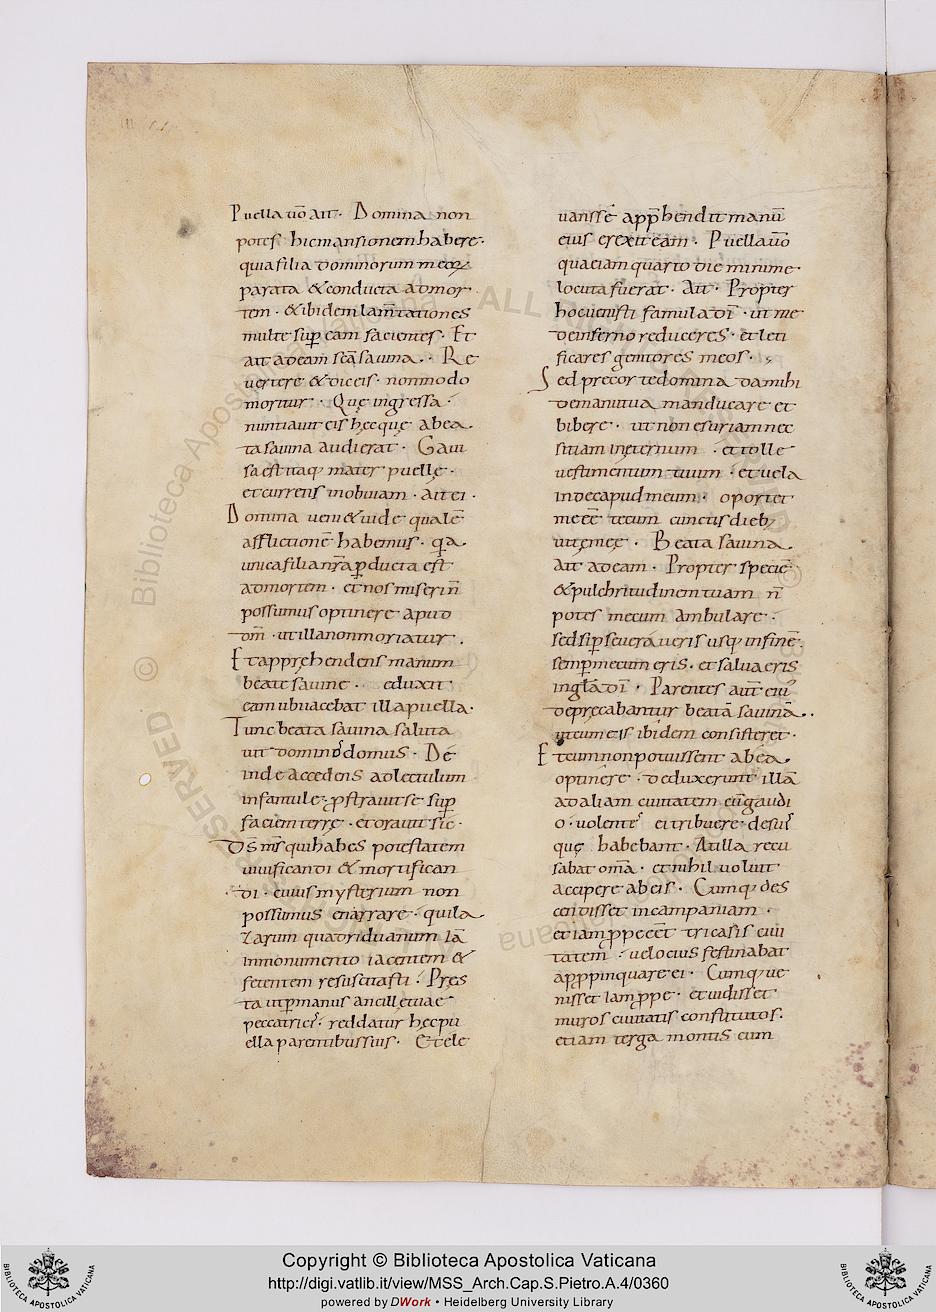 Puella uō ait· Domina non
potes hic mansionem habere·
quia filia dominorum meoꝝ
parata & conducta ad mor
tem· & ibidem lam̄tationes
multe suꝑ eam facientes· Et
ait ad eam sc̄a sauina·· Re
uertere & dic eis· non modo
moritur· Quę ingressa·
nuntiauit eis hęc quę abea
ta sauina audierat· Gaui
sa est itaq; mater puellę·
et currens in obuiam· ait ei·
Domina ueni & uide qualē
afflictionē habemus· q̄a
unica filia nr̄a ꝑducta est
ad mortem· et nos miseri n̄
possumus optinere apud
dm̄· ut illa non moriatur·
Et apprehendens manum
beate sauine· eduxit
eam ubi iacebat illa puella·
Tunc beata sauina saluta
uit dominos domus· De
inde accedens ad lectulum
infantule· ꝓstrauit se suꝑ
faciem terrę· et orauit sic·
D̄s m̄s qui habes potestatem
uiuificandi & mortifican
di· cuius mysterium non
possumus enarrare· qui la
zarum quatriduanum iā
in monumento iacentem &
fetentem resuscitasti· Pręs
ta ut ꝑ manus ancillę tuae
peccatricis· reddatur hęc pu
ella parentibus suis· Et ele
uansse app̄hendit manū
eius erexit eam· Puella uō
quae iam quarto die minime
locuta fuerat· Ait· Propter
hoc uenisti famula dī· ut me
de inferno reduceres· et leti
ficares genitores meos·
Sed precor te domina da mihi
de manu tua manducare et
bibere· ut non esuriam nec
sitiam in eternum· et tolle
uestimentum tuum· et uela
inde capud meum· oportet
me eē tecum cunctis dieb;
uitę meę· Beata sauina
ait ad eam· Propter speciē
& pulchritudinem tuam n̄
potes mecum ambulare·
sed si ꝑseueraueris usq; in finē
semꝑ mecum eris· et salua eris
in gl̄a dī· Parentes aut̄ eius
depręcabantur beatā sauinā··
ut cum eis ibidem consisteret·
Et cum non potuissent abea
optinere· deduxerunt illā
ad aliam ciuitatem cū gaudi
o· uolentes ei tribuere de suis
quę habebant· At illa recu
sabat om̄a· et nihil uoluit
accipere ab eis· Cumq; des
cendisset in campaniam·
et iam ꝓpe eēt tricasis ciui
tatem· uelocius festinabat
apꝓpinquare ei· Cumq; ue
nisset iam ꝓpe· et uidisset
muros ciuitatis constitutos·
etiam terga montis cum
© Biblioteca Apostolica Vaticana
ALL RIGHTS RESERVED
Copyright © Biblioteca Apostolica Vaticana
http://digi.vatlib.it/view/MSS_Arch.Cap.S.Pietro.A.4/0360
powered by DWork • Heidelberg University Library
BIBLIOTECA APOSTOLICA VATICANA
BIBLIOTECA APOSTOLICA VATICANA